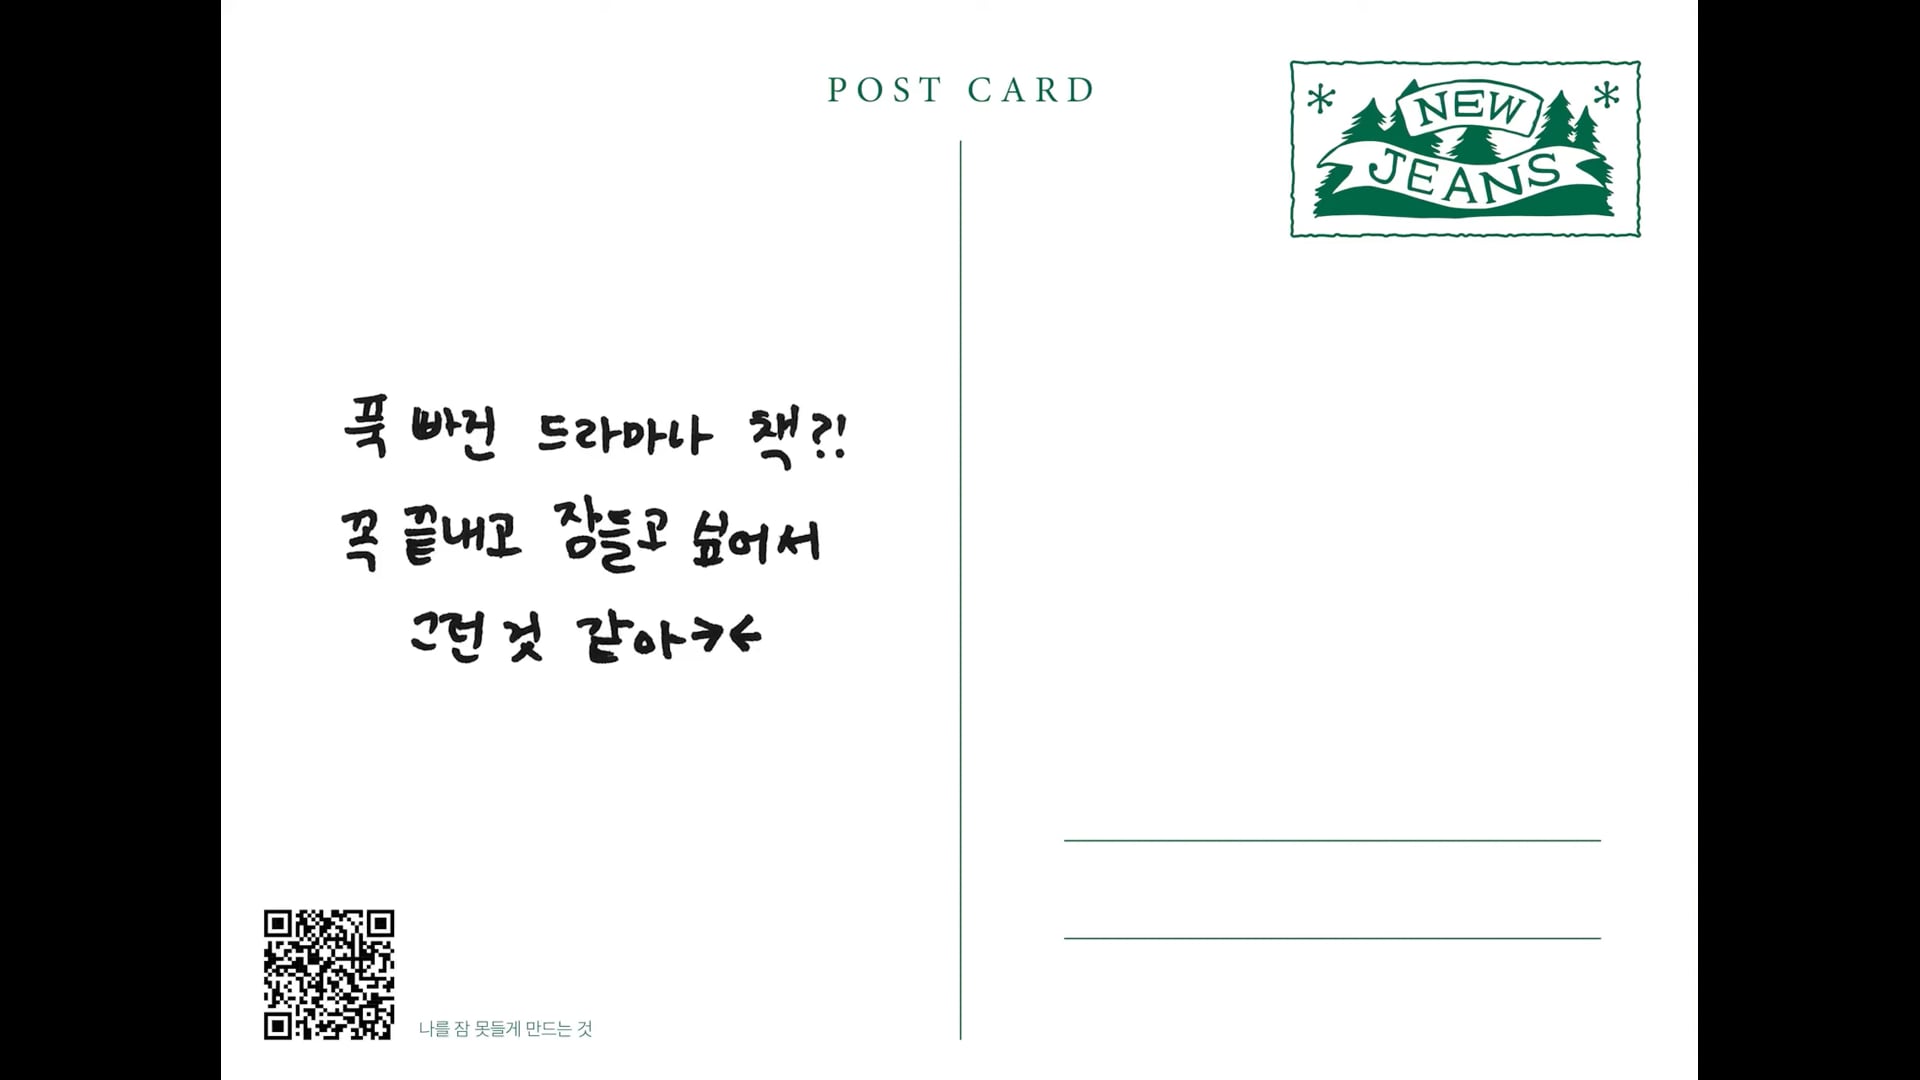 POST CARD
NEW
JEANS
푹 빠진 드라마나 책?!
꼭 끝내고 잠들고 싶어서
그런 것 같아→←
나를 잠 못들게 만드는 것